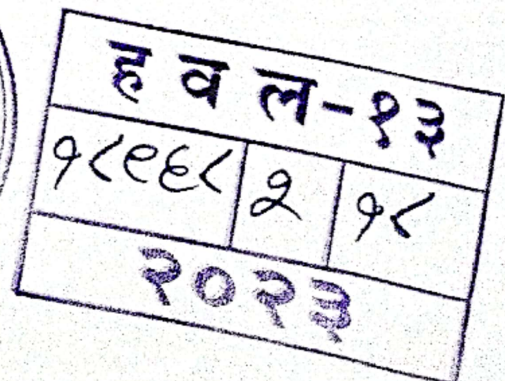 ह व ल-१३
१८९६८ २ १८
२०२३